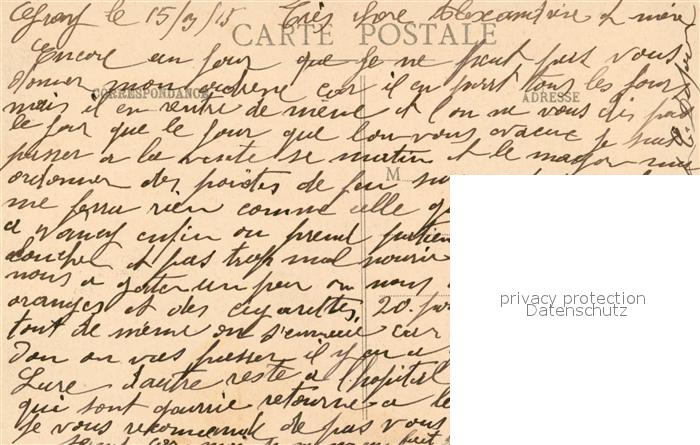 le 15/3/15 Très chère Alexandrine et mère
CARTE POSTALE
Encore un jour que je ne peut pas vous
donner mon adresse car il en part tous les jour
CORRESPONDANCE
ADRESSE
mais il en rentre de même et l'on ne vous dis pas
le jour que le jour que l'on vous évacue je suis
passer a la visite se matin et le major ma
ordonner des pointes de feu
M
me ferra rien comme celle
a Nancy enfin on prend patien
coucher et pas trop mal nourir
nous a gater un peu on nous
oranges et des cigarettes, 20
tout de même on s'ennuie car
don on vas passer il y en a
Lure d'autre reste a l'hopital
qui sont guerrie retourne a le
je vous recommande de pas vous
privacy protection
Datenschutz